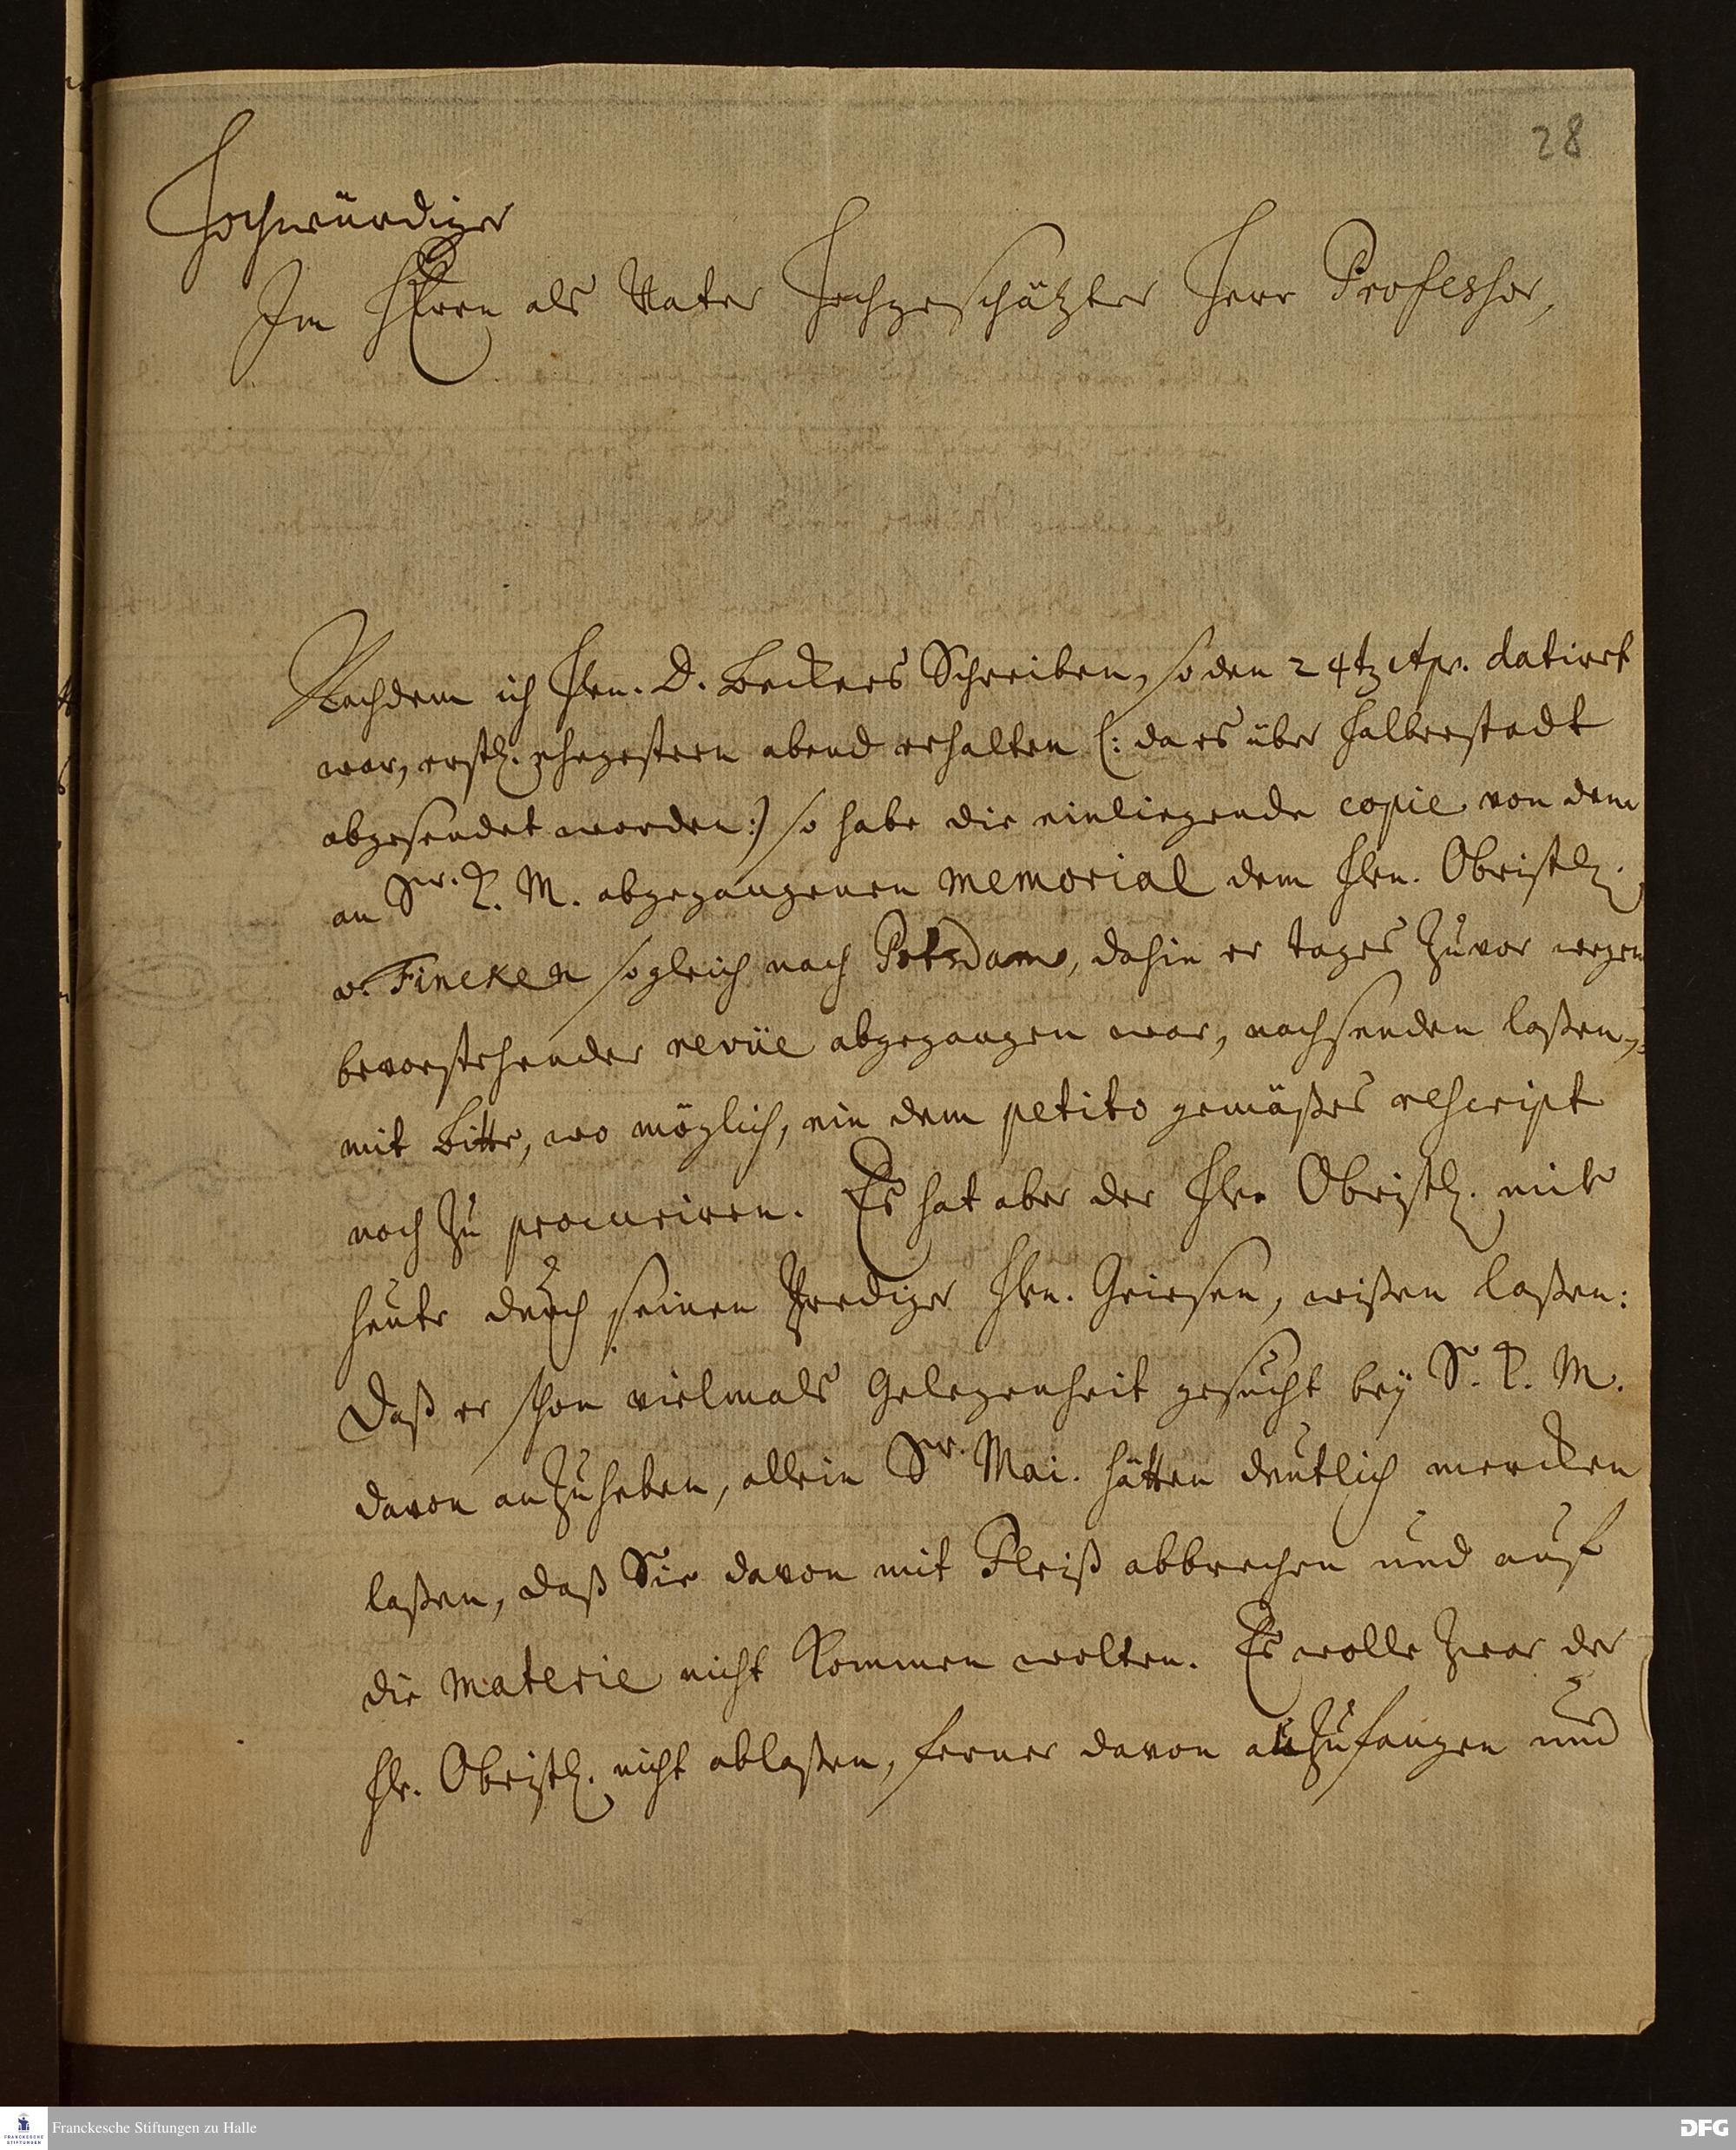 28
Hochwürdiger
Im HErrn als Vater Hochgeschätzter Herr Professor,
Nachdem ich Hrn. D. Beckers Schreiben, so den 24tz Apr. datirt
war, erstl. ehegestern abend erhalten (: da es über Halberstadt
abgesendet worden :) so habe die einliegende copie von dem
an Sr. K. M. abgegangenen memorial dem Hrn. Obristl.
v. Fincken sogleich nach Potsdam, dahin er tages zuvor wegen
bevorstehender revüe abgegangen war, nachsenden laßen,
mit Bitte, wo möglich, ein dem petito gemäßes rescript
noch zu procuriren. Es hat aber der Herr Obristl. mir
heute durch seinen Prediger Hrn. Griesen, wißen laßen:
Daß er schon vielmals Gelegenheit gesucht bey S. K. M.
davon anzuheben, allein Sr. Mai. hätten deutlich mercken
laßen, daß Sie davon mit Fleiß abbrechen und auf
die materie nicht kommen wolten. Es wolle zwar der
Hr. Obristl. nicht ablaßen, ferner davon anzufangen und
Franckesche Stiftungen zu Halle
FRANCKESCHE
STIFTUNGEN
DFG